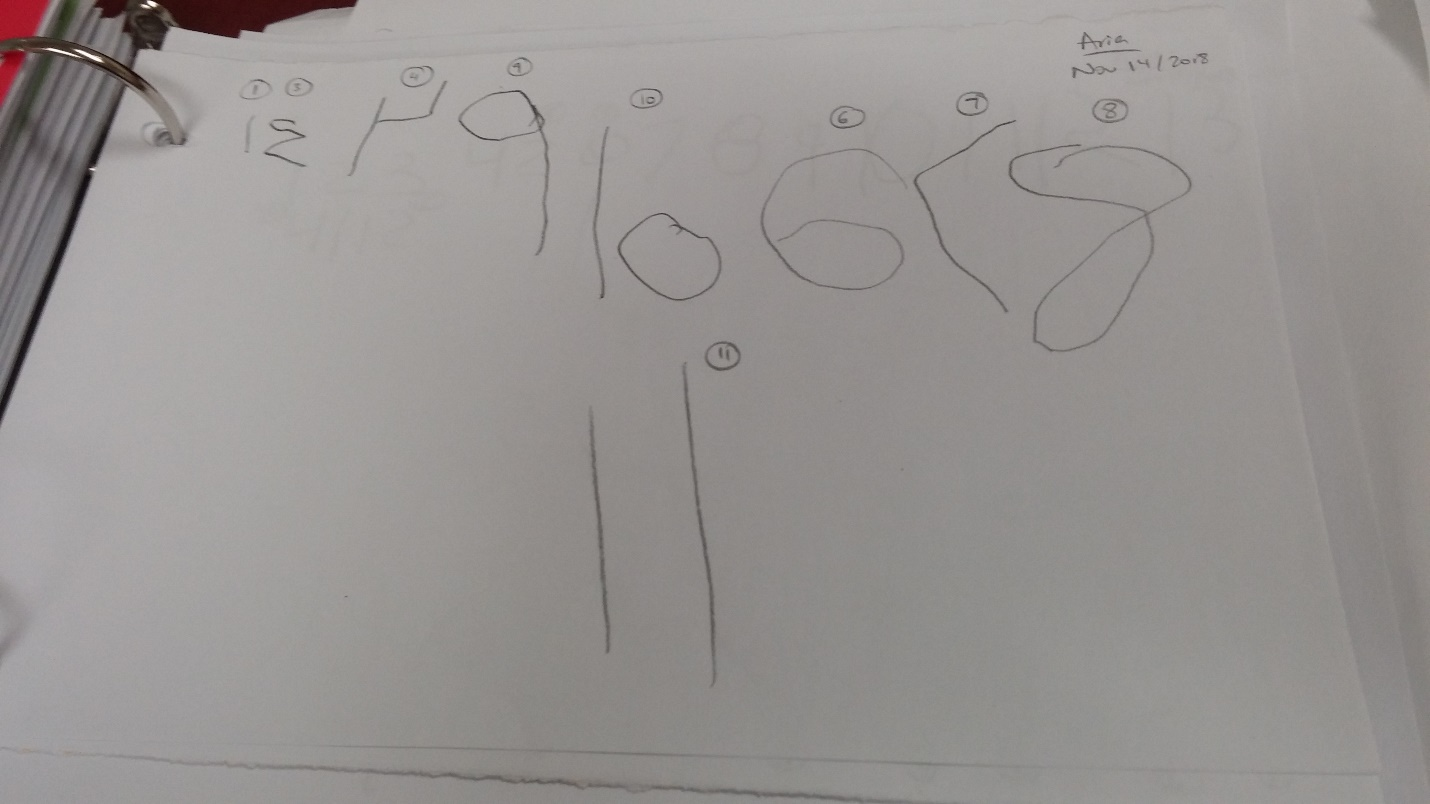 Aria
Nov 14/2018
① ③ ④ ⑨ ⑩ ⑥ ⑦ ⑧
1 3 4 9 10 6 7 8
⑪
11